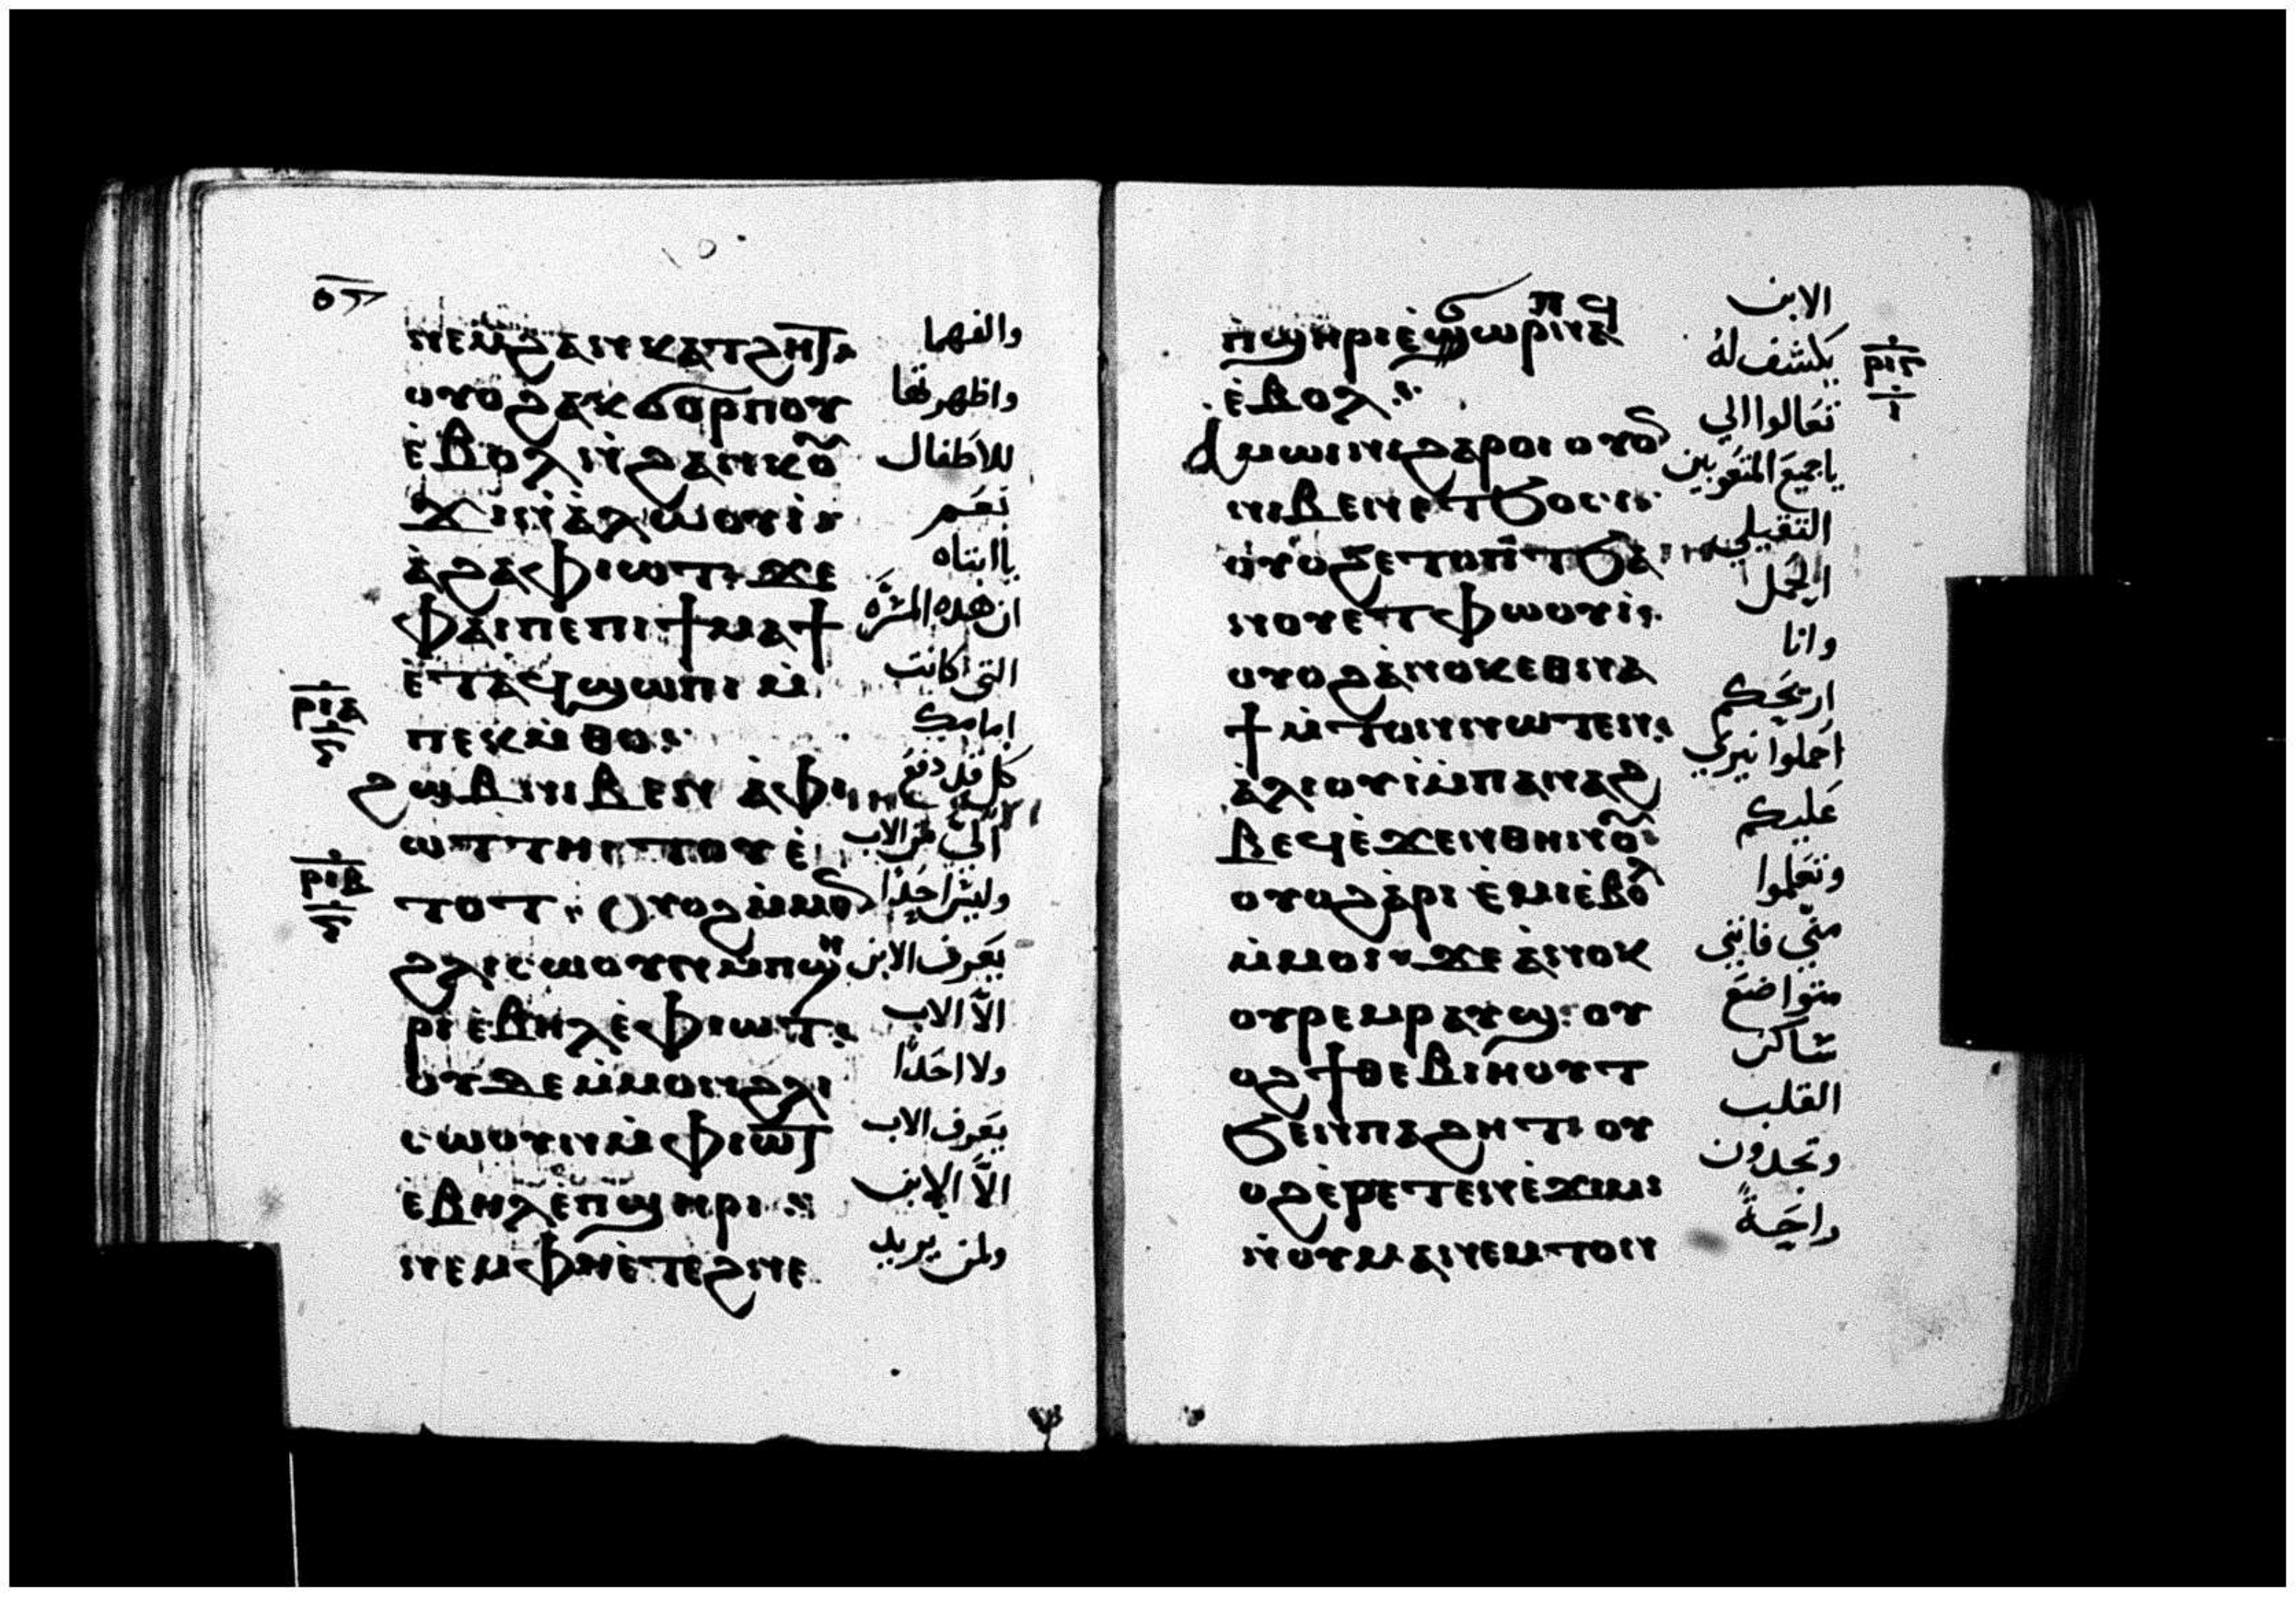 ⲛⲉⲙϩⲁⲛⲕⲁⲧϩⲏⲧ
ⲟⲩⲟϩⲁⲕϭⲟⲣⲡⲟⲩ
ⲉ̀ⲃⲟⲗⲛ̀ϩⲁⲛⲕⲟⲩ
ϫⲓⲛ̀ⲁ̀ⲗⲱⲟⲩⲓ̀:
ⲁ̀ϩⲁ̀ⲫⲓⲱⲧ: ϫⲉ
ⲫⲁⲓⲡⲉⲡⲓϯⲙⲁϯ
ⲉ̀ⲧⲁϥϣⲱⲡⲓ ⲙ̀
ⲡⲉⲕⲙ̀ⲑⲟ:
ϩⲱⲃⲛⲓⲃⲉⲛ ⲁ̀ⲫⲓ
ⲱⲧⲧⲏⲓⲧⲟⲩ ⲉ̀
ⲧⲟⲧ: ⲟⲩⲟϩⲙ̀ⲙⲟⲛ
ϩⲗⲓⲥⲱⲟⲩⲛⲙ̀ⲡϣⲏ
ⲣⲓ ⲉ̀ⲃⲏⲗⲉ̀ⲫⲓⲱⲧ:
ⲟⲩⲇⲉⲙ̀ⲙⲟⲛϩⲗⲓ
ⲥⲱⲟⲩⲛⲙ̀ⲫⲓⲱⲧ
ⲉ̀ⲃⲏⲗⲉ̀ⲡϣⲏⲣⲓ :
ⲛⲉⲙⲫⲏⲉ̀ⲧⲉϩⲛⲉ
والفهما
واظهرتها
للاطفال
نعم
ياابتاه
ان هذه المسّرَه
التي كانت
امامك
كل قد دفع
اليّ من الاب
وليسَ احَدًا
يعَرف الابن
الّا الاب
ولا احَدًا
يعَرف الاب
الّا الابن
ولمن يريد
ⲣⲓⲁ
ⲣⲓⲃ
ⲡϥ
ⲡ̀ϣⲏⲣⲓⲉ̀ϭⲱⲣⲡⲛⲁϥ
ⲉ̀ⲃⲟⲗ:
ⲁⲙⲱⲓⲛⲓϩⲁⲣⲟⲓ ⲟⲩⲟⲛ
ⲛⲓⲃⲉⲛⲉⲧϧⲟⲥⲓ:
ⲟⲩⲟϩⲉⲧⲟⲡⲧϧⲁ
ⲛⲟⲩⲉⲧⲫⲱⲟⲩⲓ̀:
ⲟⲩⲟϩⲁ̀ⲛⲟⲕⲉⲑⲛⲁ
ϯⲙ̀ⲧⲟⲛⲛⲱⲧⲉⲛ:
ⲁ̀ⲗⲓⲟⲩⲓ̀ⲙ̀ⲡⲁⲛⲁϩ
ⲃⲉϥⲉ̀ϫⲉⲛⲑⲏⲛⲟⲩ:
ⲟⲩⲟϩⲁ̀ⲣⲓ ⲉ̀ⲙⲓⲉ̀ⲃⲟⲗ
ⲙ̀ⲙⲟⲓ: ϫⲉ ⲁ̀ⲛⲟⲕ
ⲟⲩⲣⲉⲙⲣⲁⲩϣ: ⲟⲩ
ⲟϩϯⲑⲉⲃⲓⲏⲟⲩⲧ
ϧⲉⲛⲡⲁϩⲏⲧ: ⲟⲩ
ⲟϩⲉ̀ⲣⲉⲧⲉⲛⲉ̀ϫⲓⲙⲓ
ⲛ̀ⲟⲩⲙⲁⲛⲉⲙⲧⲟⲛ
الابن
يكشف لهُ
تعَالوا الي
ياجميعَ المتعَوبين
الثقيلي
الحِمل
وانا
اريَحكم
احَملوا نيري
عَليكم
وتعَلموا
منّي فانني
متواضعَ
ساكن
القلب
وتجدون
راحَةً
ⲣⲓⲅ